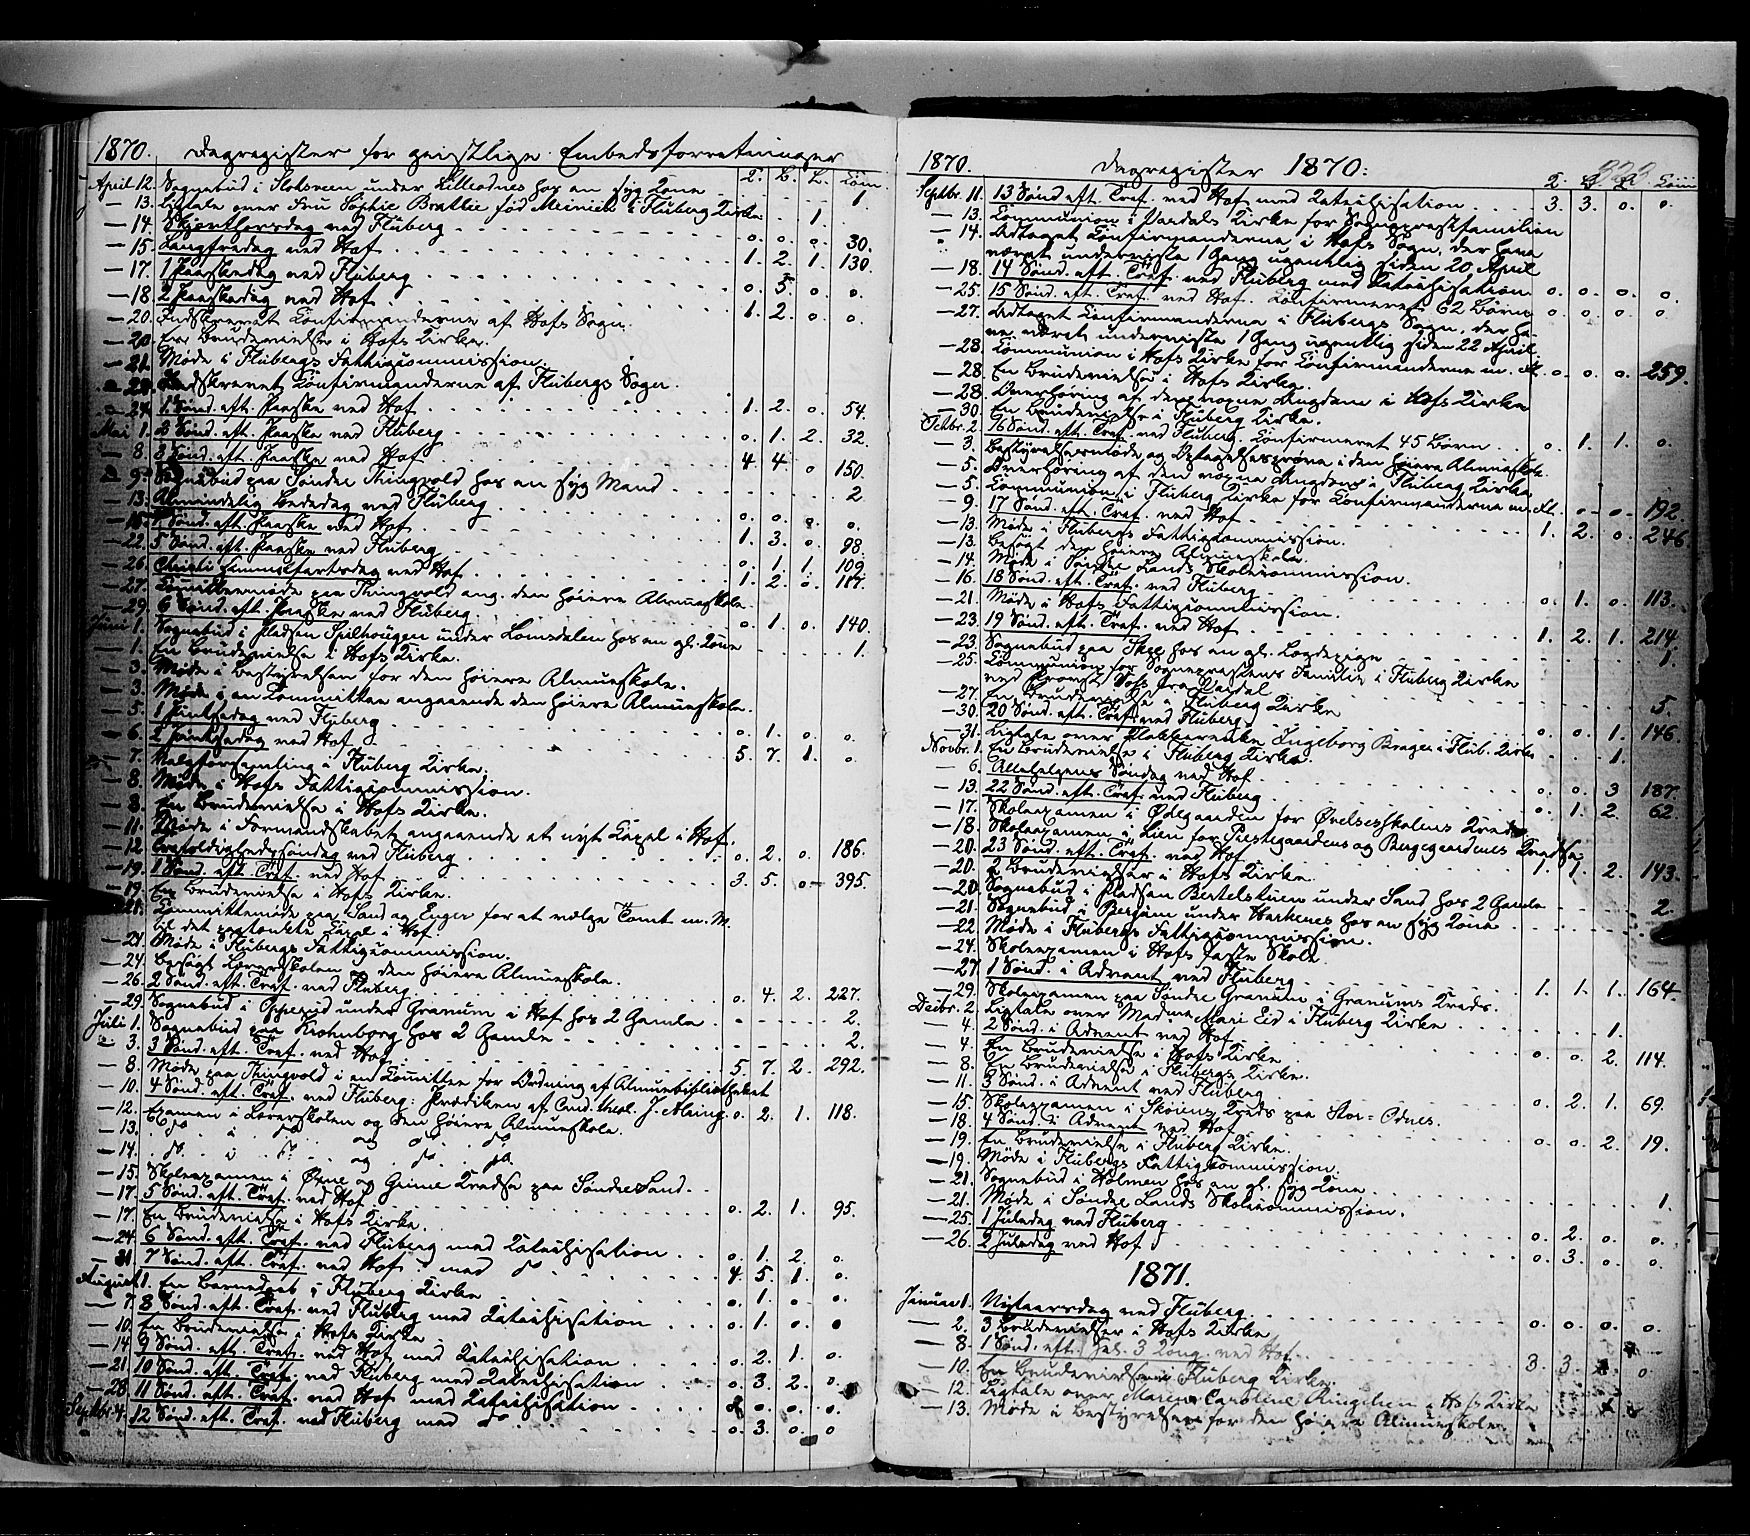 1870. Dagregister for geistlige Embedsforretninger
T. B. L. Com.
April 12. Sognebud i under Lilleodnes hos en syg Kone 1.
— 13. Ligtale over Fru Sophie Brathie fød Meinich i Fluberg Kirke 1.
— 14. Skjærthorsdag ved Fluberg o. o. o. 30.
— 15. Langfredag ved Hof 1. 2. 1. 130.
— 17. 1 Paaskedag ved Fluberg o. 5. o. o.
— 18. 2 Paaskedag ved Hof 1. 2. o. o.
— 20. Indskrevet Confirmanderne af Hofs Sogn.
— 20. En Brudevielse i Hofs Kirke.
— 21. Møde i Flubergs Fattigcommission.
— 22. Indskrevet Confirmanderne af Flubergs Sogn.
— 24. 1 Sønd. eft. Paaske ved Hof 1. 2. o. 54.
Mai 1. 2 Sønd. eft. Paaske ved Fluberg o. 1. 2. 32.
— 8. 3 Sønd. eft. Paaske ved Hof 4. 4. o 150.
— 9. Sognebud paa Søndre Thingvold hos en syg Mand 2.
— 13. Almindelig Bededag ved Fluberg o. o. o. o.
— 15. 4 Sønd. eft. Paaske ved Hof 1. 3. o. 98.
— 22. 5 Sønd. eft. Paaske ved Fluberg o. 1. 1. 109.
— 26. Christi Himmelfartsdag ved Hof 1. 2. o. 117.
— 27. Comittemøde paa Thingvold ang. den høiere Almueskole.
— 29. 6 Sønd. eft. Paaske ved Fluberg o. 1. o. 140.
Juni 1. Sognebud i Pladsen Spilhougen under Lomsdalen hos en gl. Kone 1.
— 1. En Brudevielse i Hofs Kirke.
— 3. Møde i Bestyrelsen for den høiere Almueskole.
— 3. Møde i en Committee angaaende den høiere Almueskole.
— 5. 1 Pintsedag ved Fluberg o. 1. o. o.
— 6. 2 Pintsedag ved Hof 5. 7. 1. o.
— 7. Valgforsamling i Fluberg Kirke.
— 8. Møde i Hofs Fattigcommission.
— 8. En Brudevielse i Hofs Kirke.
— 11. Møde i Formandskabet angaaende et nyt Capel i Hof.
— 12. Trefoldighedssøndag ved Fluberg o. 2. o. 186.
— 19. 1 Sønd. eft. Tref. ved Hof 3. 5. o — 395.
— 19. En Brudevielse i Hofs Kirke.
— 21. Committemøde paa Sand og Enger for at vælge Tomt m. M.
til det paatænkte Capel i Hof.
— 21. Møde i Flubergs Fattigcommission.
— 24. Besøgt Lærerskolen og den høiere Almueskole.
— 26. 2 Sønd. eft. Tref. ved Fluberg o. 4. 2. 227.
— 29. Sognebud i Opperud under Granum i Hof hos 2 Gamle 2.
Juli 1. Sognebud paa Kronborg hos 2 Gamle 2.
— 3. 3 Sønd. eft. Tref. ved Hof 5. 7. 2. 292.
— 8. Møde paa Thingvold i en Comittee for Ordning af Almuebibliotheket
— 10. 4 Sønd. eft. Tref. ved Fluberg: Prædiken af Cand. theol. J. Alme. o. 2. 1. 118.
— 12. Examen i Lærerskolen og den høiere Almueskole.
— 13. do. i do. og do. do.
— 14. do. i do. og do. do.
— 15. Skoleexamen i Øvre og Grime Kredse paa Søndre Land.
— 17. 5 Sønd. eft. Tref. ved Hof o. 2. 1. 95.
— 17. En Brudevielse i Hofs Kirke.
— 24. 6 Sønd. eft. Tref. ved Fluberg med Katechisation o. 1. 2. o.
— 31. 7 Sønd. eft. Tref. ved Hof med do 4. 5. 1. o.
August 1. En Barnedaab i Fluberg Kirke o. 1. o. o.
— 7. 8 Sønd. eft. Tref. ved Fluberg med Katechisation o. 1. o. o
— 10. En Brudevielse i Hofs Kirke
— 14. 9 Sønd. eft. Tref. ved Hof med Katechisation o. 2. 1. o.
— 21. 10 Sønd. eft. Tref. ved Fluberg med Katechisation o. 3. 2. o.
— 28. 11 Sønd. eft. Tref. ved Hof med Katechisation o. o. o. o.
Septbr. 4. 12 Sønd. eft. Tref. ved Fluberg med do o. 3. o. o
1870. Dagregister 1870.
323
T. B. L. Com
Septbr. 11. 13 Sønd eft. Tref. ved Hof med Katechisation 3. 3. o. o.
— 13. Communion i Vardals Kirke for Sognepræstfamilien
— 14. Adtaget Confirmanderne i Hofs Sogn, der have
været underviste 1 Gang ugentlig siden 20 April
— 18. 14 Sønd. eft. Tref. ved Fluberg med Katechisation o. o. o. o.
— 25. 15 Sønd. eft. Tref. ved Hof. Confirmeret 62 Børn o. o. o. o.
— 27. Adtaget Confirmanderne i Flubergs Sogn, der ha-
ve været underviste 1 Gang ugentlig siden 22 April.
— 28. Communion i Hofs Kirke for Confirmanderne m. fl. o. o. o. 259.
— 28. En Brudevielse i Hofs Kirke.
— 28. Overhøring af den voxne Ungdom i Hofs Kirke
— 30. En Brudevielse i Fluberg Kirke.
Octbr. 2. 16 Sønd. eft. Tref. ved Fluberg. Confirmeret 45 Børn o. 1. 1. o.
— 3. Bestyrelsesmøde og Optagelsesprøve i den høiere Almueskole.
— 5. Overhøring af den voxne Ungdom i Fluberg Kirke
— 5. Communion i Fluberg Kirke for Confirmanderne m. fl. o. — o. 192.
— 9. 17 Sønd. eft. Tref. ved Hof 1. 2. o. 246
— 13. Møde i Flubergs Fattigcommission.
— 13. Besøgt den høiere Almueskole.
— 14. Møde i Søndre Lands Skolecommission.
— 16. 18 Sønd. eft. Tref. ved Fluberg o. 1. o. 113.
— 21. Møde i Hofs Fattigcommission.
— 23. 19 Sønd. eft. Tref. ved Hof 1. 2. 1. 214.
— 23. Sognebud paa hos en gl. Lægdepige 1.
— 25. Communion for Sognepræstens Familie i Fluberg Kirke
ved Provst fra Vardal 5.
— 27. En Brudevielse i Fluberg Kirke
— 30. 20 Sønd. eft. Tref. ved Fluberg o. o. 1. 146.
— 31. Ligtale over Klokkerenke Ingeborg Brager i Flub. Kirke 1.
Novbr. 1. En Brudevielse i Fluberg Kirke.
— 6. Allehelgens Søndag ved Hof o. o. 3 187.
— 13. 22 Sønd. eft. Tref. ved Fluberg o. 1. 2. 62
— 17. Skoleexamen i Ødegaarden for Øvelsesskolens Kreds
— 18. Skoleexamen i Lien for Prestegaardens og Bergegaardenes Kredse
— 20. 23 Sønd. eft. Tref. ved Hof 1. 1. 2. 143.
— 20. 2 Brudevielser i Hofs Kirke.
— 20. Sognebud i Pladsen Bertelstuen under Sand hos 2 Gamle 2.
— 21. Sognebud i Bergum under Harkenes hos en syg Kone
— 22. Møde i Flubergs Fattigcommission.
— 24. Skoleexamen i Hofs faste Skole.
— 27. 1 Sønd. i Advent ved Fluberg 1. 1. 1. 164.
— 29. Skoleexamen paa Søndre Granum i Granums Kreds.
Decbr. 2. Ligtale over Madme Mari Eid i Fluberg Kirke 1.
— 4. 2 Sønd. i Advent ved Hof o. o. 2. 114.
— 4. En Brudevielse i Hofs Kirke
— 8. En Brudevielse i Flubergs Kirke.
— 11. 3 Sønd. i Advent ved Fluberg o. 2. 1. 69.
— 15. Skoleexamen i Skøiens Kreds paa Stor-Odnes.
— 18. 4 Sønd. i Advent ved Hof o. o. 2. 19.
— 19. En Brudevielse i Fluberg Kirke.
— 19. Møde i Flubergs Fattigcommission.
— 21. Sognebud i Holmen hos en gl. syg Kone 1.
— 21. Møde i Søndre Lands Skolecommission.
— 25. 1 Juledag ved Fluberg o. 2. o. o.
— 26. 2 Juledag ved Hof o. 3. o. o.
1871.
Januar 1. Nytaarsdag ved Fluberg o. o. o. o.
— 2. 3 Brudevielser i Hofs Kirke
— 8. 1 Sønd. eft. Hel. 3 Kong. ved Hof 3. 3. o
— 10. En Brudevielse i Fluberg Kirke.
— 12. Ligtale over Maren Caroline Ringelien i Hofs Kirke
— 13. Møde i Bestyrelsen for den høiere Almueskole